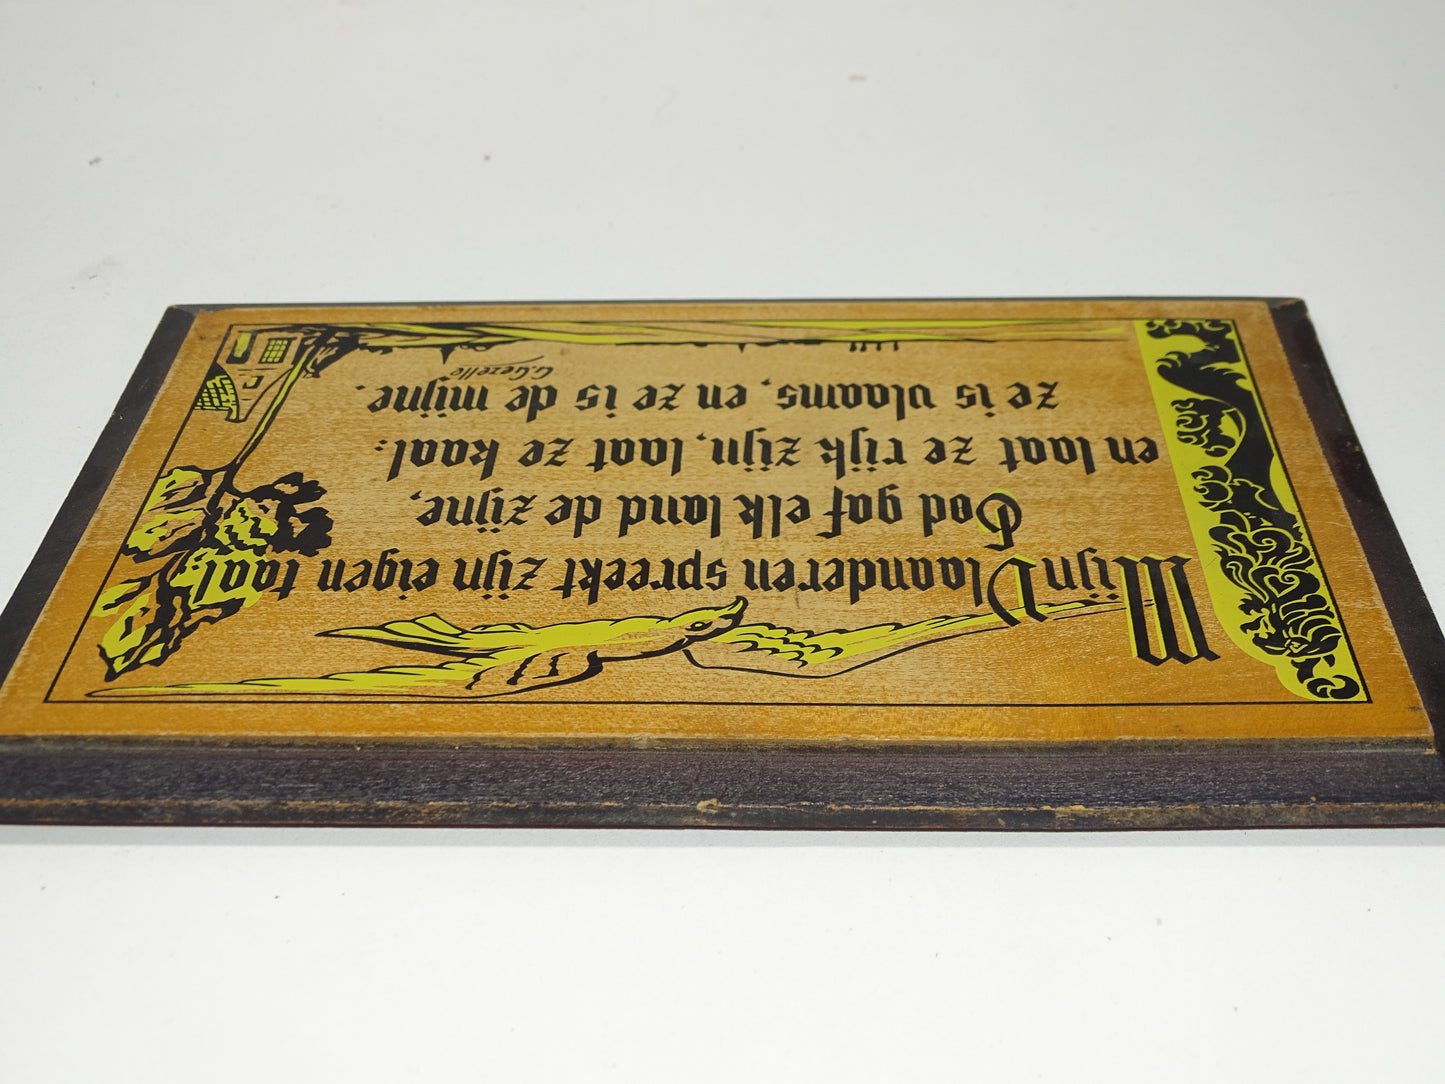 Mijn Vlaanderen spreekt zijn eigen taal
God gaf elk land de zijne,
en laat ze rijk zijn, laat ze kaal:
ze is vlaams, en ze is de mijne.
G. Gezelle